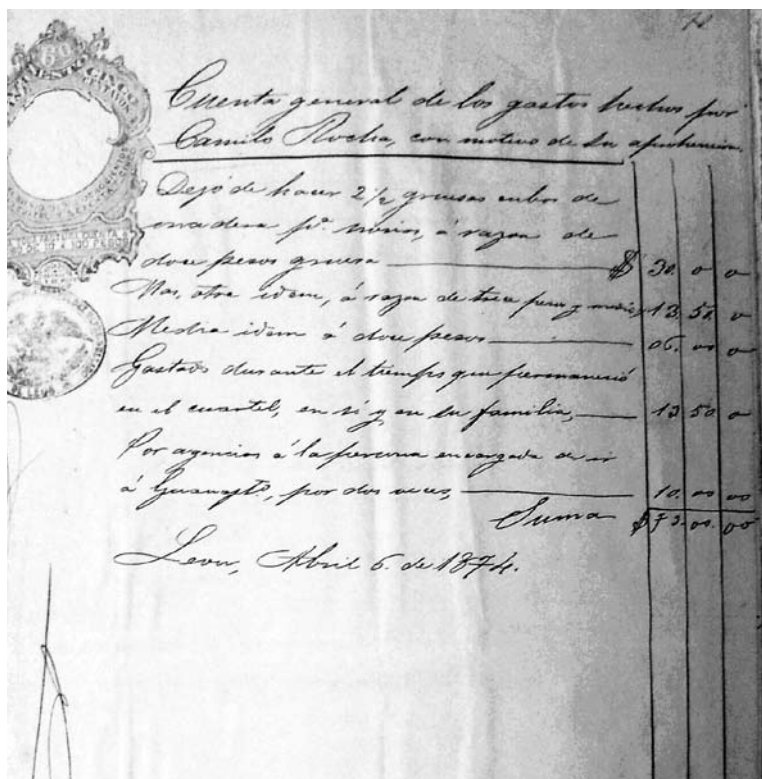 60
CINCO
Cuenta general de los gastos hechos por
Camilo Rocha, con motivo de su aprehencion.
Dejó de hacer 2 1/2 gruesas cubos de
madera pª. norias, á razon de
doce pesos gruesa $ 30. 0 0
Mas, otra idem, á razon de trece pesos y medio, 13 50. 0
Media idem á doce pesos 06. 00 0
Gastado durante el tiempo que permaneció
en el cuartel, en sí y en su familia, 13 50 0
Por agencias á la persona encargada de ir
á Guanajtº, por dos veces, 10. 00 00
Suma $73. 00. 00
Leon, Abril 6. de 1874.